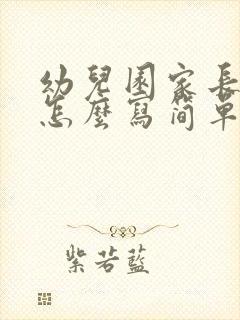 幼兒園家長
怎麼寫简单
紫若藍